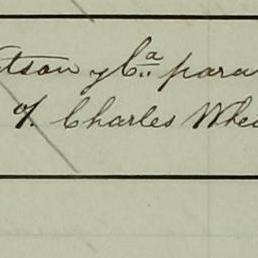 atson y Cª para
%. Charles Whe